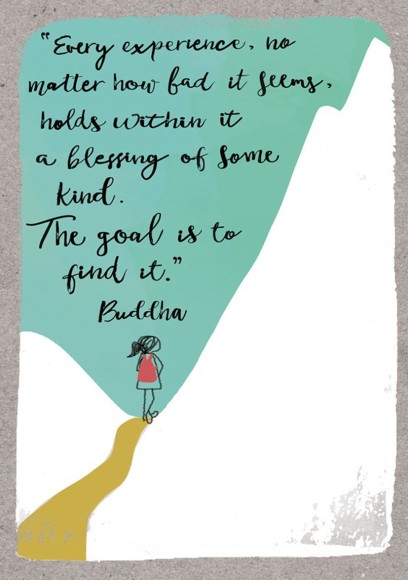 "Every experience, no
matter how bad it seems,
holds within it
a blessing of some
kind.
The goal is to
find it."
Buddha